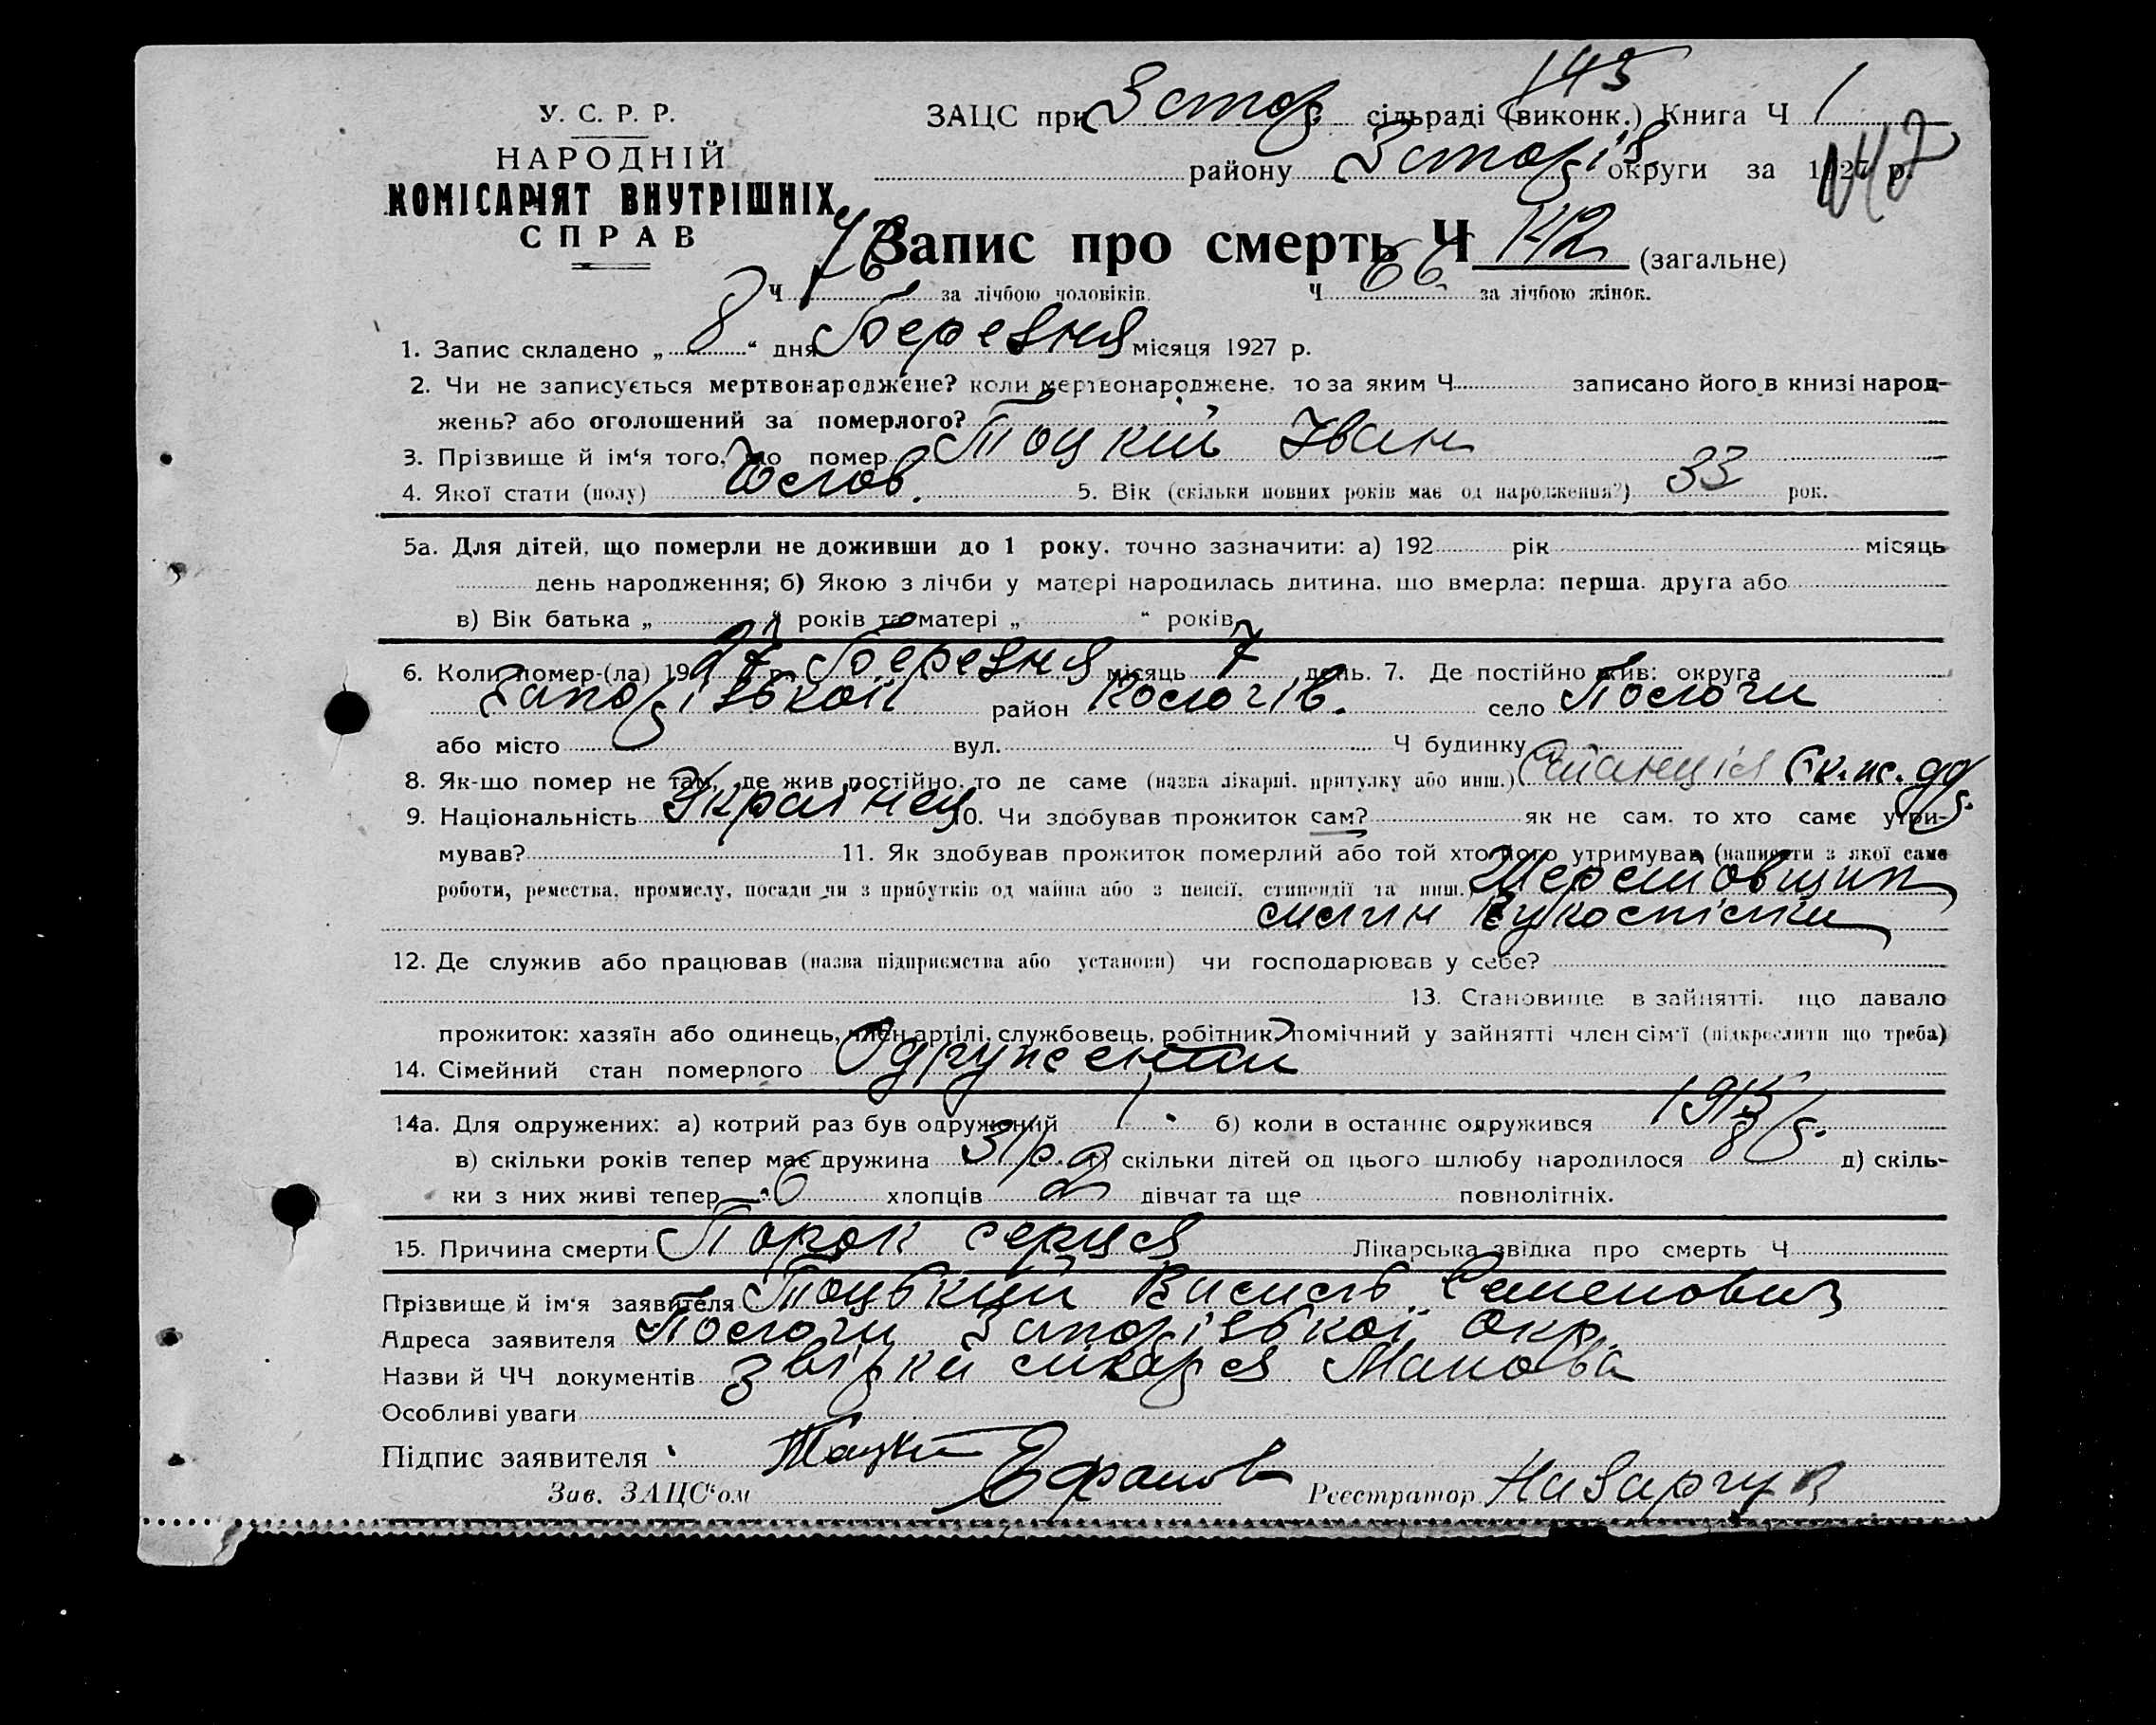 143
У. С. Р. Р. ЗАЦС при Запор сільраді (виконк.) Книга Ч 1
НАРОДНІЙ району Запоріз округи за 1927 р. 147
КОМІСАРІЯТ ВНУТРІШНІХ
СПРАВ
Запис про смерть Ч 142 (загальне)
Ч 76 за лічбою чоловіків. Ч 66 за лічбою жінок.
1. Запис складено „ 8 “ дня Березня місяця 1927 р.
2. Чи не записується мертвонароджене? коли мертвонароджене, то за яким Ч записано його в книзі народ-
жень? або оголошений за померлого?
3. Прізвище й ім‘я того, що помер Тоцкій Іван
4. Якої стати (полу) Чолов. 5. Вік (скільки повних років має од народження?) 33 рок.
5а. Для дітей, що померли не доживши до 1 року, точно зазначити: а) 192 рік місяць
день народження; б) Якою з лічби у матері народилась дитина, що вмерла: перша, друга або
в) Вік батька „ “ років та матері „ “ років
6. Коли помер-(ла) 1927 р. Березня місяць 7 день. 7. Де постійно жив: округа
Запорізької район Пологів. село Пологи
або місто вул. Ч будинку
8. Як-що помер не там, де жив постійно, то де саме (назва лікарні, притулку або инш.) Станція
9. Національність Українец 10. Чи здобував прожиток сам? як не сам, то хто саме утри-
мував? 11. Як здобував прожиток померлий або той хто його утримував (написати з якої саме
роботи, ремества, промислу, посади чи з прибутків од майна або з пенсії, стипендії та инш.)
12. Де служив або працював (назва підприємства або установи) чи господарював у себе?
13. Становище в зайнятті, що давало
прожиток: хазяїн або одинець, член артілі, службовець, робітник, помічний у зайнятті член сім‘ї (підкреслити що треба)
14. Сімейний стан померлого Одружений
14а. Для одружених: а) котрий раз був одружений 1 б) коли в останнє одружився 1913
в) скільки років тепер має дружина 31 р. г) скільки дітей од цього шлюбу народилося 8 д) скіль-
ки з них живі тепер 6 хлопців 2 дівчат та ще повнолітніх.
15. Причина смерти Порок серця Лікарська звідка про смерть Ч
Прізвище й ім‘я заявителя Тоцький Василь Семенович
Адреса заявителя Пологи Запорізької Окр.
Назви й ЧЧ документів звідки лікаря Манова
Особливі уваги
Підпис заявителя Тоцкі
Зав. ЗАЦС‘ом Реєстратор